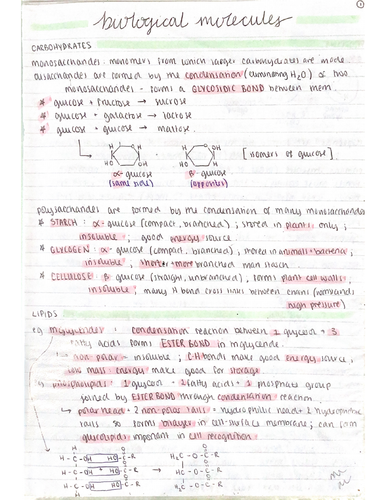 ①
biological molecules
CARBOHYDRATES
monosaccharides: monomers from which larger carbohydrates are made
disaccharides are formed by the condensation (eliminating H₂O) of two
monosaccharides - forms a GLYCOSIDIC BOND between them.
* glucose + fructose → sucrose
* glucose + galactose → lactose
* glucose + glucose → maltose.
[isomers of glucose].
α-glucose β-glucose
(same side) (opposites)
polysaccharides are formed by the condensation of many monosaccharides
* STARCH: α-glucose (compact, branched); stored in plants only;
insoluble; good energy source.
* GLYCOGEN: α-glucose (compact, branched), stored in animals + bacteria;
insoluble, shorter + more branched than starch.
* CELLULOSE: β glucose (straight, unbranched), forms plant cell walls,
insoluble; many H bond cross links between chains (withstands
high pressure)
LIPIDS
triglycerides: condensation reaction between 1 glycerol + 3
fatty acids forms ESTER BOND in triglyceride.
↳ non polar - insoluble; C-H bonds make good energy source;
low mass: energy make good for storage
phospholipids: 1 glycerol + 2 fatty acids + 1 phosphate group
joined by ESTER BOND through condensation reaction.
↳ polar head + 2 non polar tails = hydrophilic head + 2 hydrophobic
tails so forms bilayer in cell-surface membrane; can form
glycolipids important in cell recognition
H O
H-C-OH HO-C-R H₂C-O-C-R
H-C-OH + HO-C-R → HC-O-C-R
H-C-OH HO-C-R H₂C-O-C-R